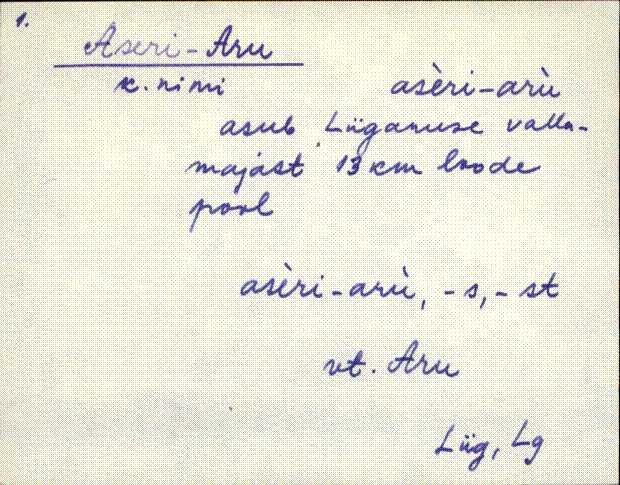 1.
Aseri-Aru
k. nimi asèri-arù
asub Lüganuse valla-
majast 13 km loode
pool
asèri-arù, -s, -st
vt. Aru
Lüg, Lg